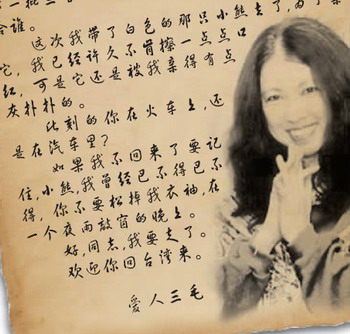 一批三
这次我带了白色的那只小熊去了，为了亲
它，我已经许久不肯擦一点点口
红，可是它还是被我亲得有点
灰扑扑的。
此刻的你在火车上，还
是在汽车里？
如果我不回来了要记
住，小熊，我曾经巴不得巴不
得，你不要松掉我衣袖，在
一个夜雨敲窗的晚上。
好，同志，我要走了。
欢迎你回台湾来。
爱人三毛